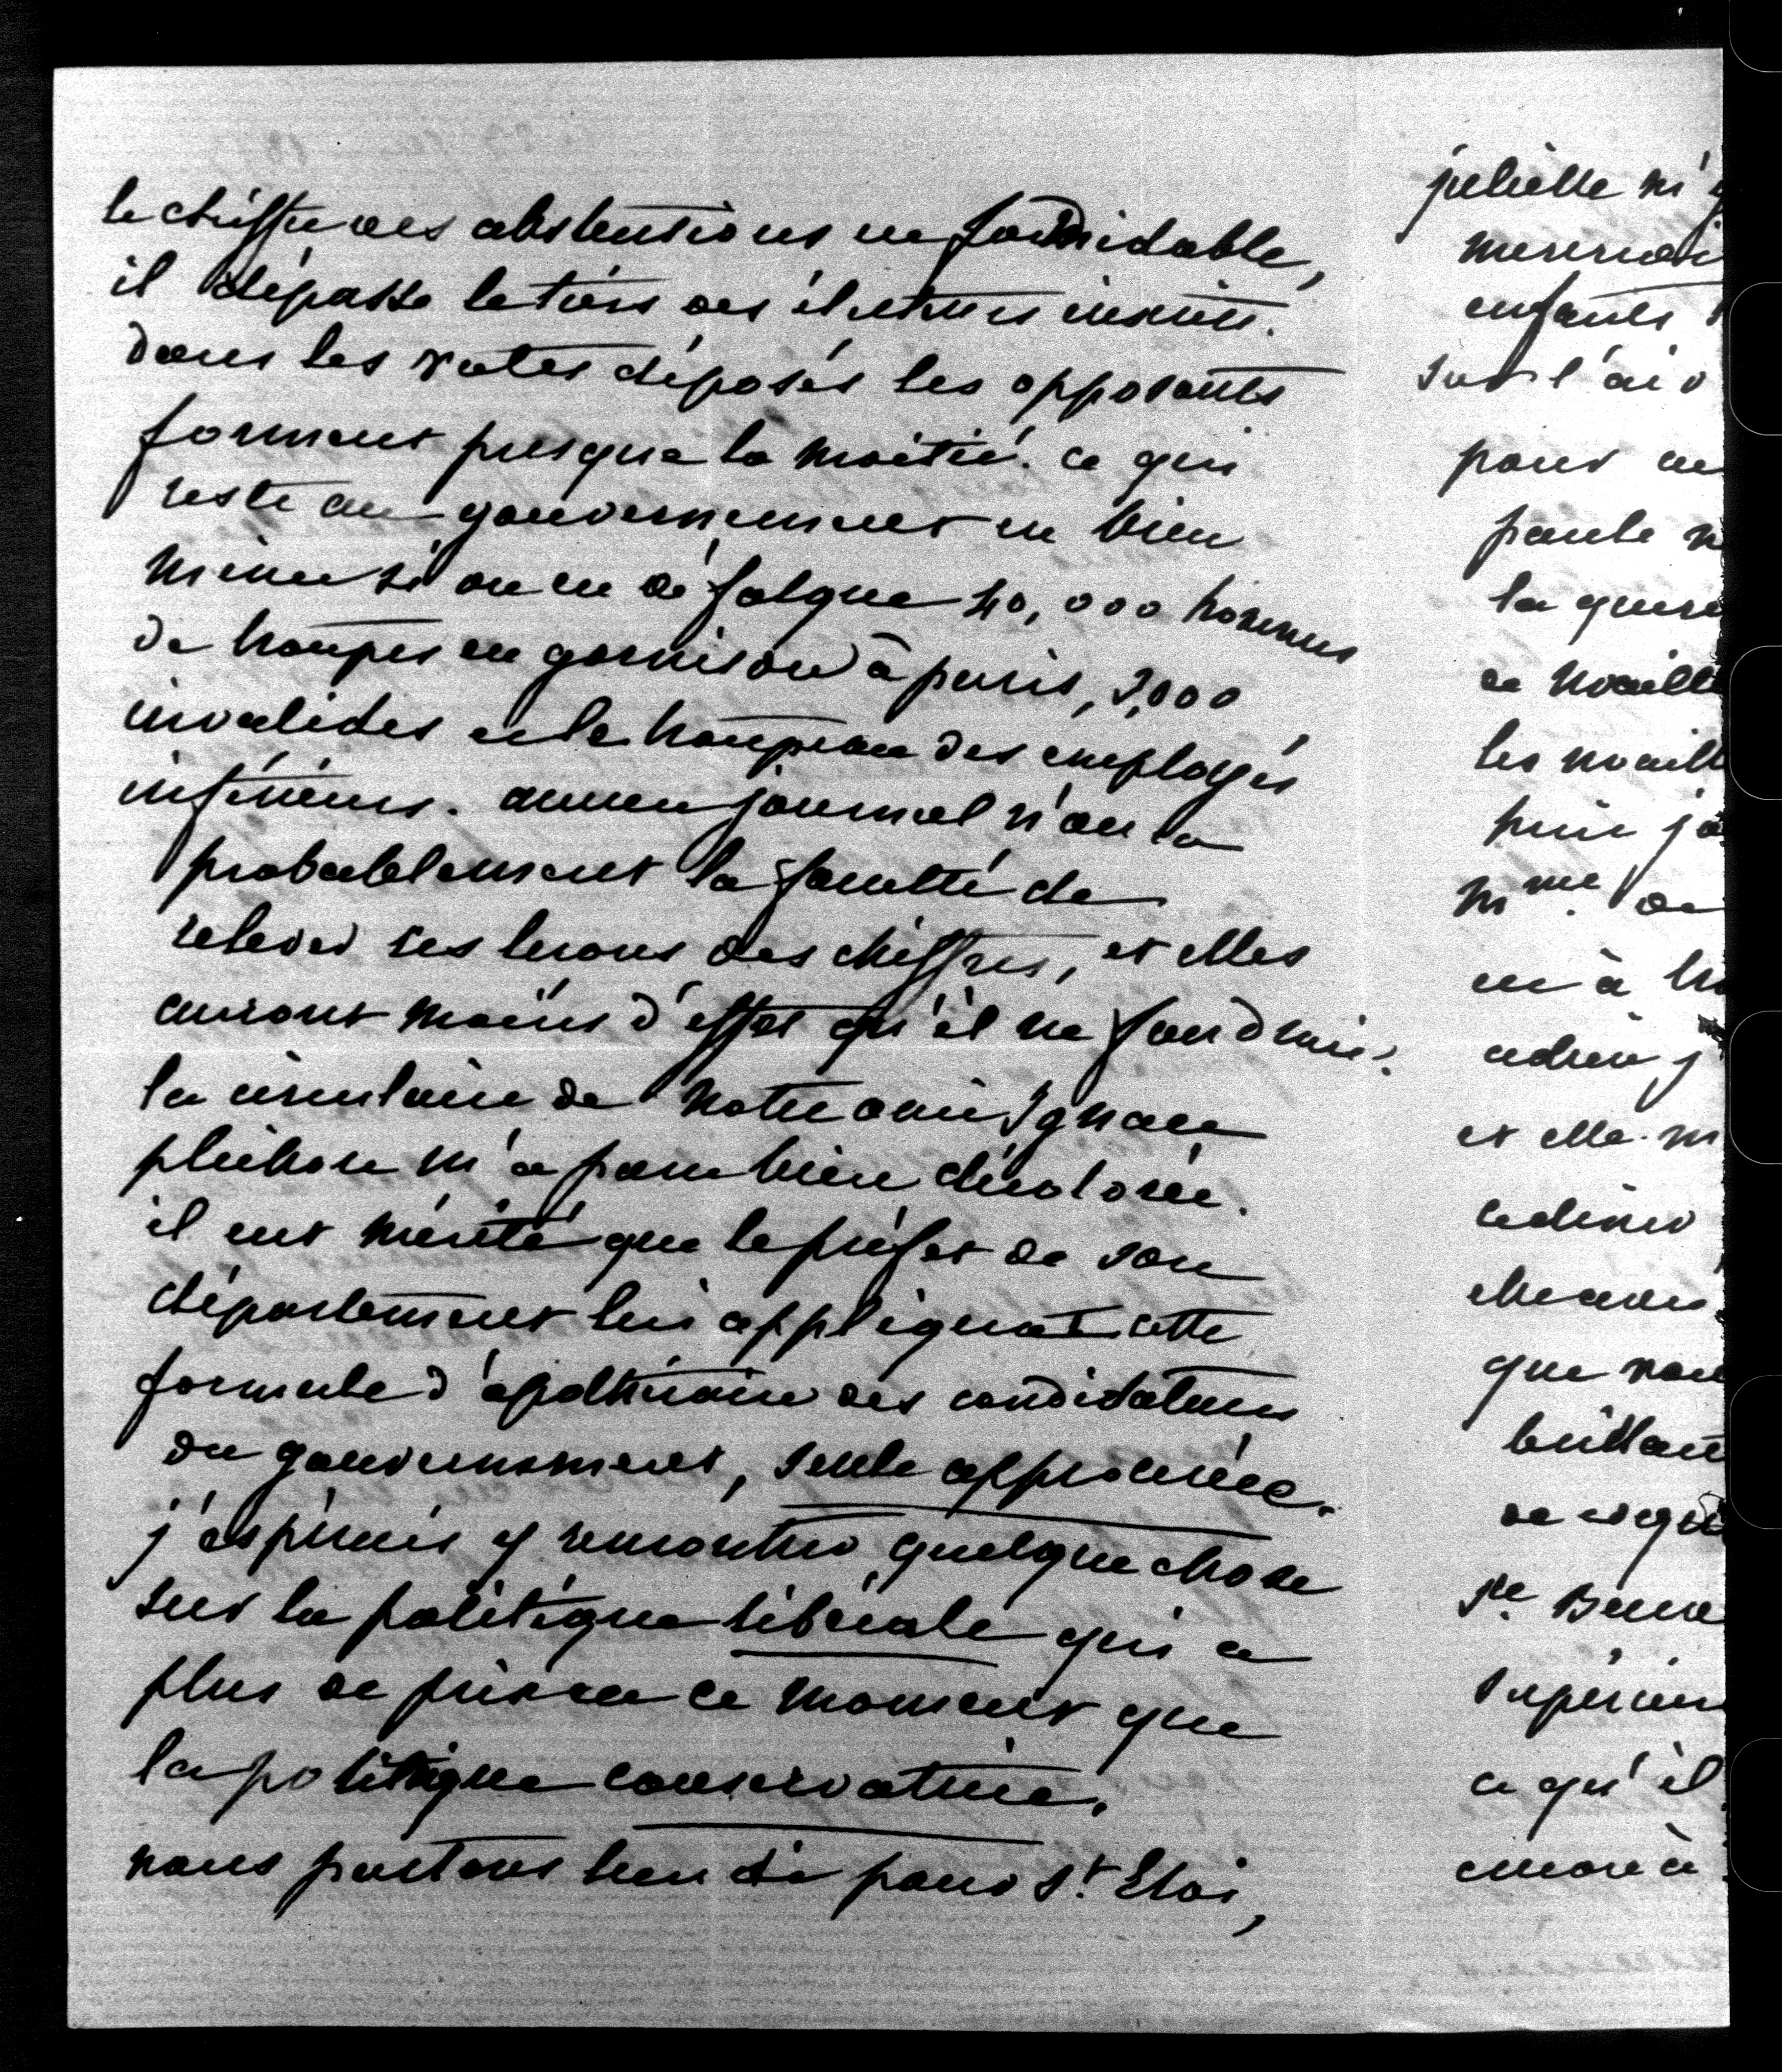 le chiffre des abstentions est formidable,
il dépasse le tiers des électeurs inscrits.
dans les votes déposés les opposants
forment presque la moitié. ce qui
reste au gouvernement est bien
mince si on en défalque 40,000 hommes
de troupes en garnison à paris, 3,000
invalides et le troupeau des employés
inférieurs. aucun journal n'aura
probablement la faculté de
relever ses lecons des chiffres, et elles
auront moins d'effet qu'il ne faudrait.
la circulaire de notre ami Ignace
plichon m'a paru bien décolorée.
il eut mérité que le préfet de son
département lui appliquat cette
formule d'apothicaire des candidatures
du gouvernement, seule approuvée.
j'espérais y rencontrer quelque chose
sur la politique libérale qui a
plus de prise en ce moment que
la politique conservatrice.
nous partons lundi pour St. Eloi,
juliette m'
enfants
sur l'air
pour
paule
la
de noaill
les noaill
puis j
mme. de
est à
adrien j
et elle m
que vous
brillant
de
Ste. Beuve
supérieur
ce qu'il
encore a